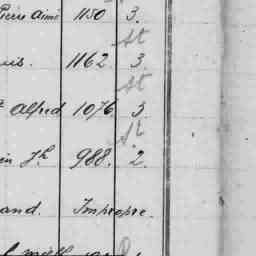 Pierre Aimé 1150 3.
St
is. 1162 3.
St
Alfred 1076 3
St
in Jh 988. 2.
and. Impropre.